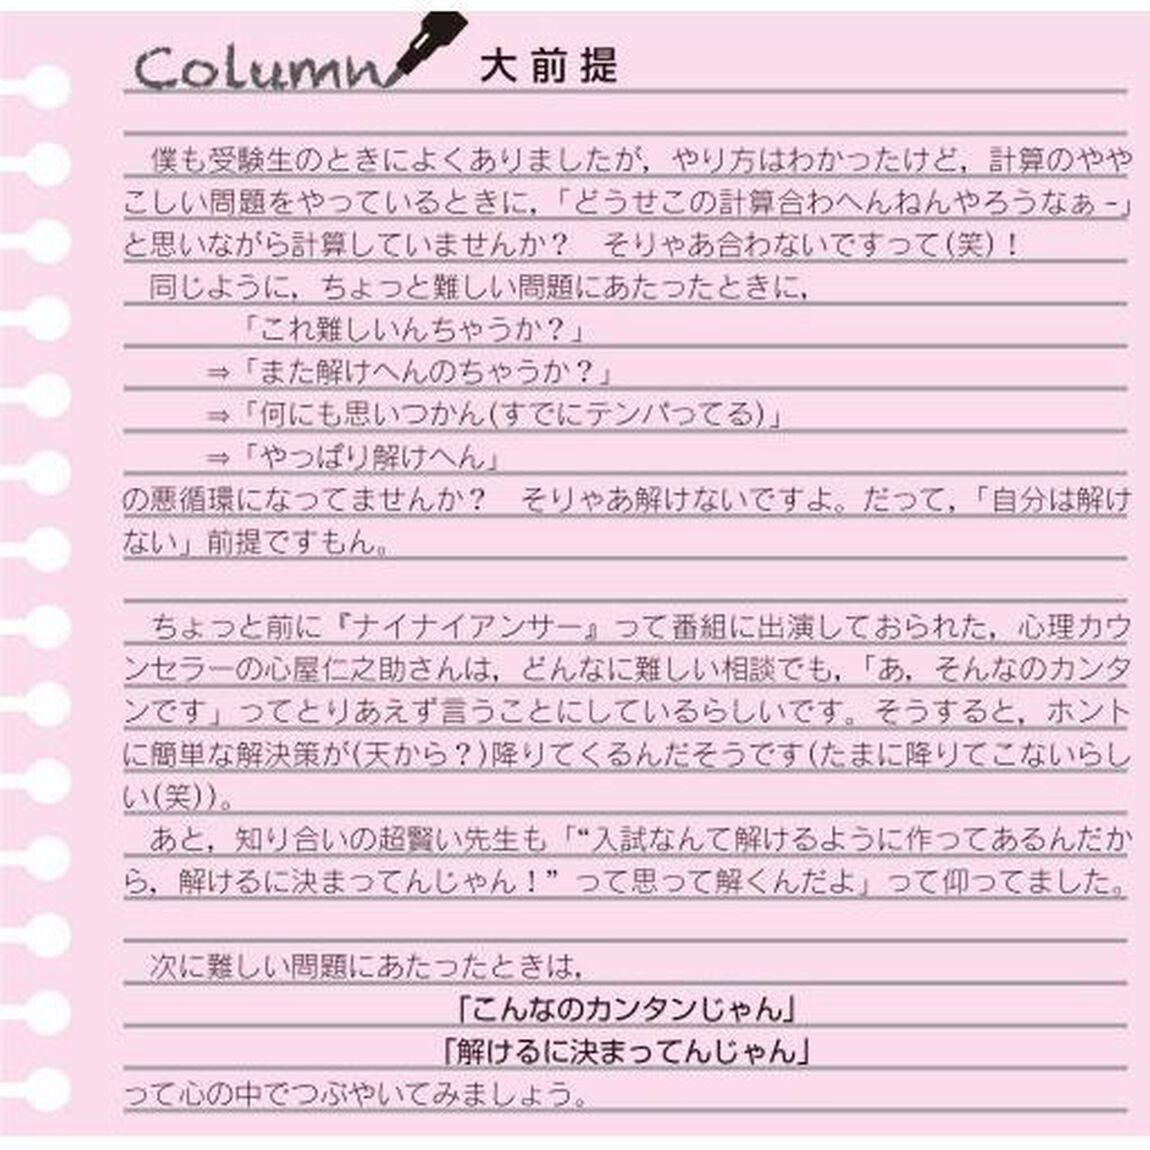 Column 大前提
僕も受験生のときによくありましたが，やり方はわかったけど，計算のやや
こしい問題をやっているときに，「どうせこの計算合わへんねんやろうなぁ-」
と思いながら計算していませんか？　そりゃあ合わないですって(笑)！
同じように，ちょっと難しい問題にあたったときに，
「これ難しいんちゃうか？」
⇒「また解けへんのちゃうか？」
⇒「何にも思いつかん(すでにテンパってる)」
⇒「やっぱり解けへん」
の悪循環になってませんか？　そりゃあ解けないですよ。だって，「自分は解け
ない」前提ですもん。
ちょっと前に『ナイナイアンサー』って番組に出演しておられた，心理カウ
ンセラーの心屋仁之助さんは，どんなに難しい相談でも，「あ，そんなのカンタ
ンです」ってとりあえず言うことにしているらしいです。そうすると，ホント
に簡単な解決策が(天から？)降りてくるんだそうです(たまに降りてこないらし
い(笑))。
あと，知り合いの超賢い先生も「“入試なんて解けるように作ってあるんだか
ら，解けるに決まってんじゃん！”って思って解くんだよ」って仰ってました。
次に難しい問題にあたったときは，
「こんなのカンタンじゃん」
「解けるに決まってんじゃん」
って心の中でつぶやいてみましょう。